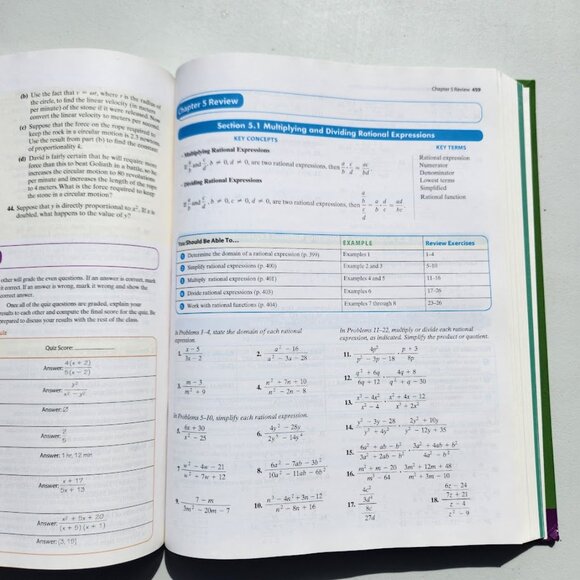 (b) Use the fact that v = ωr, where r is the radius of
the circle, to find the linear velocity (in meters
per minute) of the stone if it were released. Now
convert the linear velocity to meters per second.
(c) Suppose that the force on the rope required to
keep the rock in a circular motion is 2.3 newtons.
Use the result from part (b) to find the constant
of proportionality k.
(d) David is fairly certain that he will require more
force than this to beat Goliath in a battle, so he
increases the circular motion to 80 revolutions
per minute and increases the length of the rope
to 4 meters. What is the force required to keep
the stone in a circular motion?
44. Suppose that y is directly proportional to x². If x is
doubled, what happens to the value of y?
other will grade the even questions. If an answer is correct, mark
it correct. If an answer is wrong, mark it wrong and show the
correct answer.
Once all of the quiz questions are graded, explain your
results to each other and compute the final score for the quiz. Be
prepared to discuss your results with the rest of the class.
Quiz Score:
Answer: 4(x + 2)/5(x − 2)
Answer: y²/x² − y²
Answer: ∅
Answer: 2/5
Answer: 1 hr, 12 min
Answer: x + 17/5x + 13
Answer: x² + 5x + 20/(x + 5)(x + 1)
Answer: {3, 19}
Chapter 5 Review 459
Chapter 5 Review
Section 5.1 Multiplying and Dividing Rational Expressions
KEY CONCEPTS
KEY TERMS
• Multiplying Rational Expressions
If a/b and c/d, b ≠ 0, d ≠ 0, are two rational expressions, then a/b · c/d = ac/bd
• Dividing Rational Expressions
If a/b and c/d, b ≠ 0, c ≠ 0, d ≠ 0, are two rational expressions, then (a/b)/(c/d) = a/b · d/c = ad/bc
Rational expression
Numerator
Denominator
Lowest terms
Simplified
Rational function
You Should Be Able To… EXAMPLE Review Exercises
1 Determine the domain of a rational expression (p. 399) Examples 1 1–4
2 Simplify rational expressions (p. 400) Example 2 and 3 5–10
3 Multiply rational expressions (p. 401) Examples 4 and 5 11–16
4 Divide rational expressions (p. 403) Examples 6 17–26
5 Work with rational functions (p. 404) Examples 7 through 8 23–26
In Problems 1–4, state the domain of each rational
expression.
1. x − 5/3x − 2
2. a² − 16/a² − 3a − 28
3. m − 3/m² + 9
4. n² + 7n + 10/n² − 2n − 8
In Problems 5–10, simplify each rational expression.
5. 6x + 30/x² − 25
6. 4y² − 28y/2y³ − 14y²
7. w² − 4w − 21/w² + 7w + 12
8. 6a² − 7ab − 3b²/10a² − 11ab − 6b²
9. 7 − m/3m² − 20m − 7
10. n³ − 4n² + 3n − 12/n² − 8n + 16
In Problems 11–22, multiply or divide each rational
expression, as indicated. Simplify the product or quotient.
11. 4p²/p² − 3p − 18 · p + 3/8p
12. q² + 6q/6q + 12 · 4q + 8/q² + q − 30
13. x³ − 4x²/x² − 4 · x² + 4x − 12/x³ + 2x²
14. y² − 3y − 28/y³ + 4y² · 2y² + 10y/y² − 12y + 35
15. 6a² + ab − b²/3a² + 2ab − b² · 3a² + 4ab + b²/4a² − b²
16. m² + m − 20/m³ − 64 · 3m² + 12m + 48/m² − 10m
17. (4c²/3d⁴)/(8c/27d)
18. (6z − 24/7z + 21)/(z − 4/z² − 9)